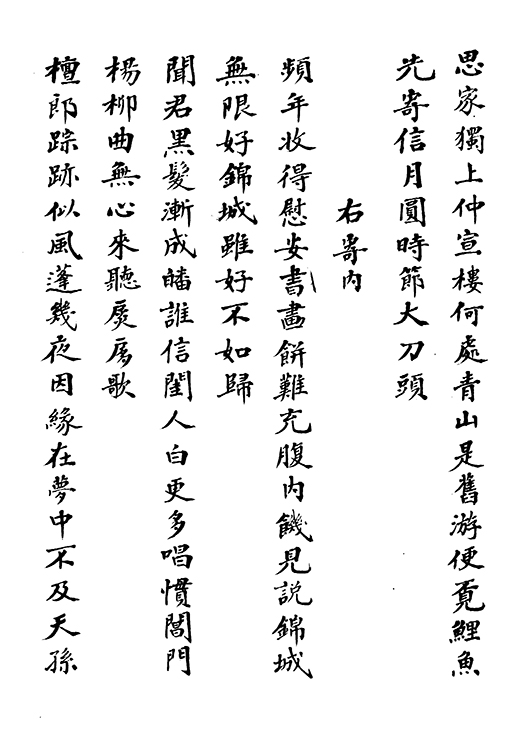 思家獨上仲宣樓何處青山是舊游便覔鯉魚
先寄信月圓時節大刀頭
右寄内
頻年收得慰安書畫餅難充腹内饑見説錦城
無限好錦城雖好不如歸
聞君黑髮漸成皤誰信閨人白更多唱慣閶門
楊柳曲無心來聽扊扅歌
檀郎踪跡似風蓬幾夜因緣在夢中不及天孫